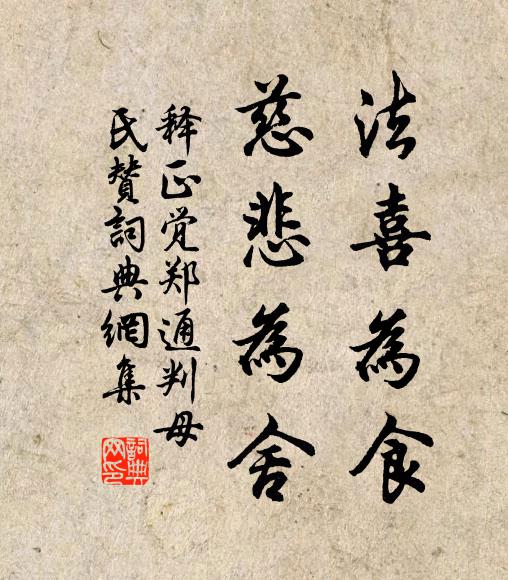 法喜為食
慈悲為舍
释正觉郑通判母
氏贊詞典網集
詞典网印